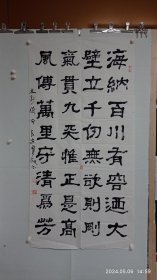 海納百川有容迺大
壁立千仞無欲則剛
氣貫九天惟正是高
風傳萬里守清爲芳
2024.05.06 14:59